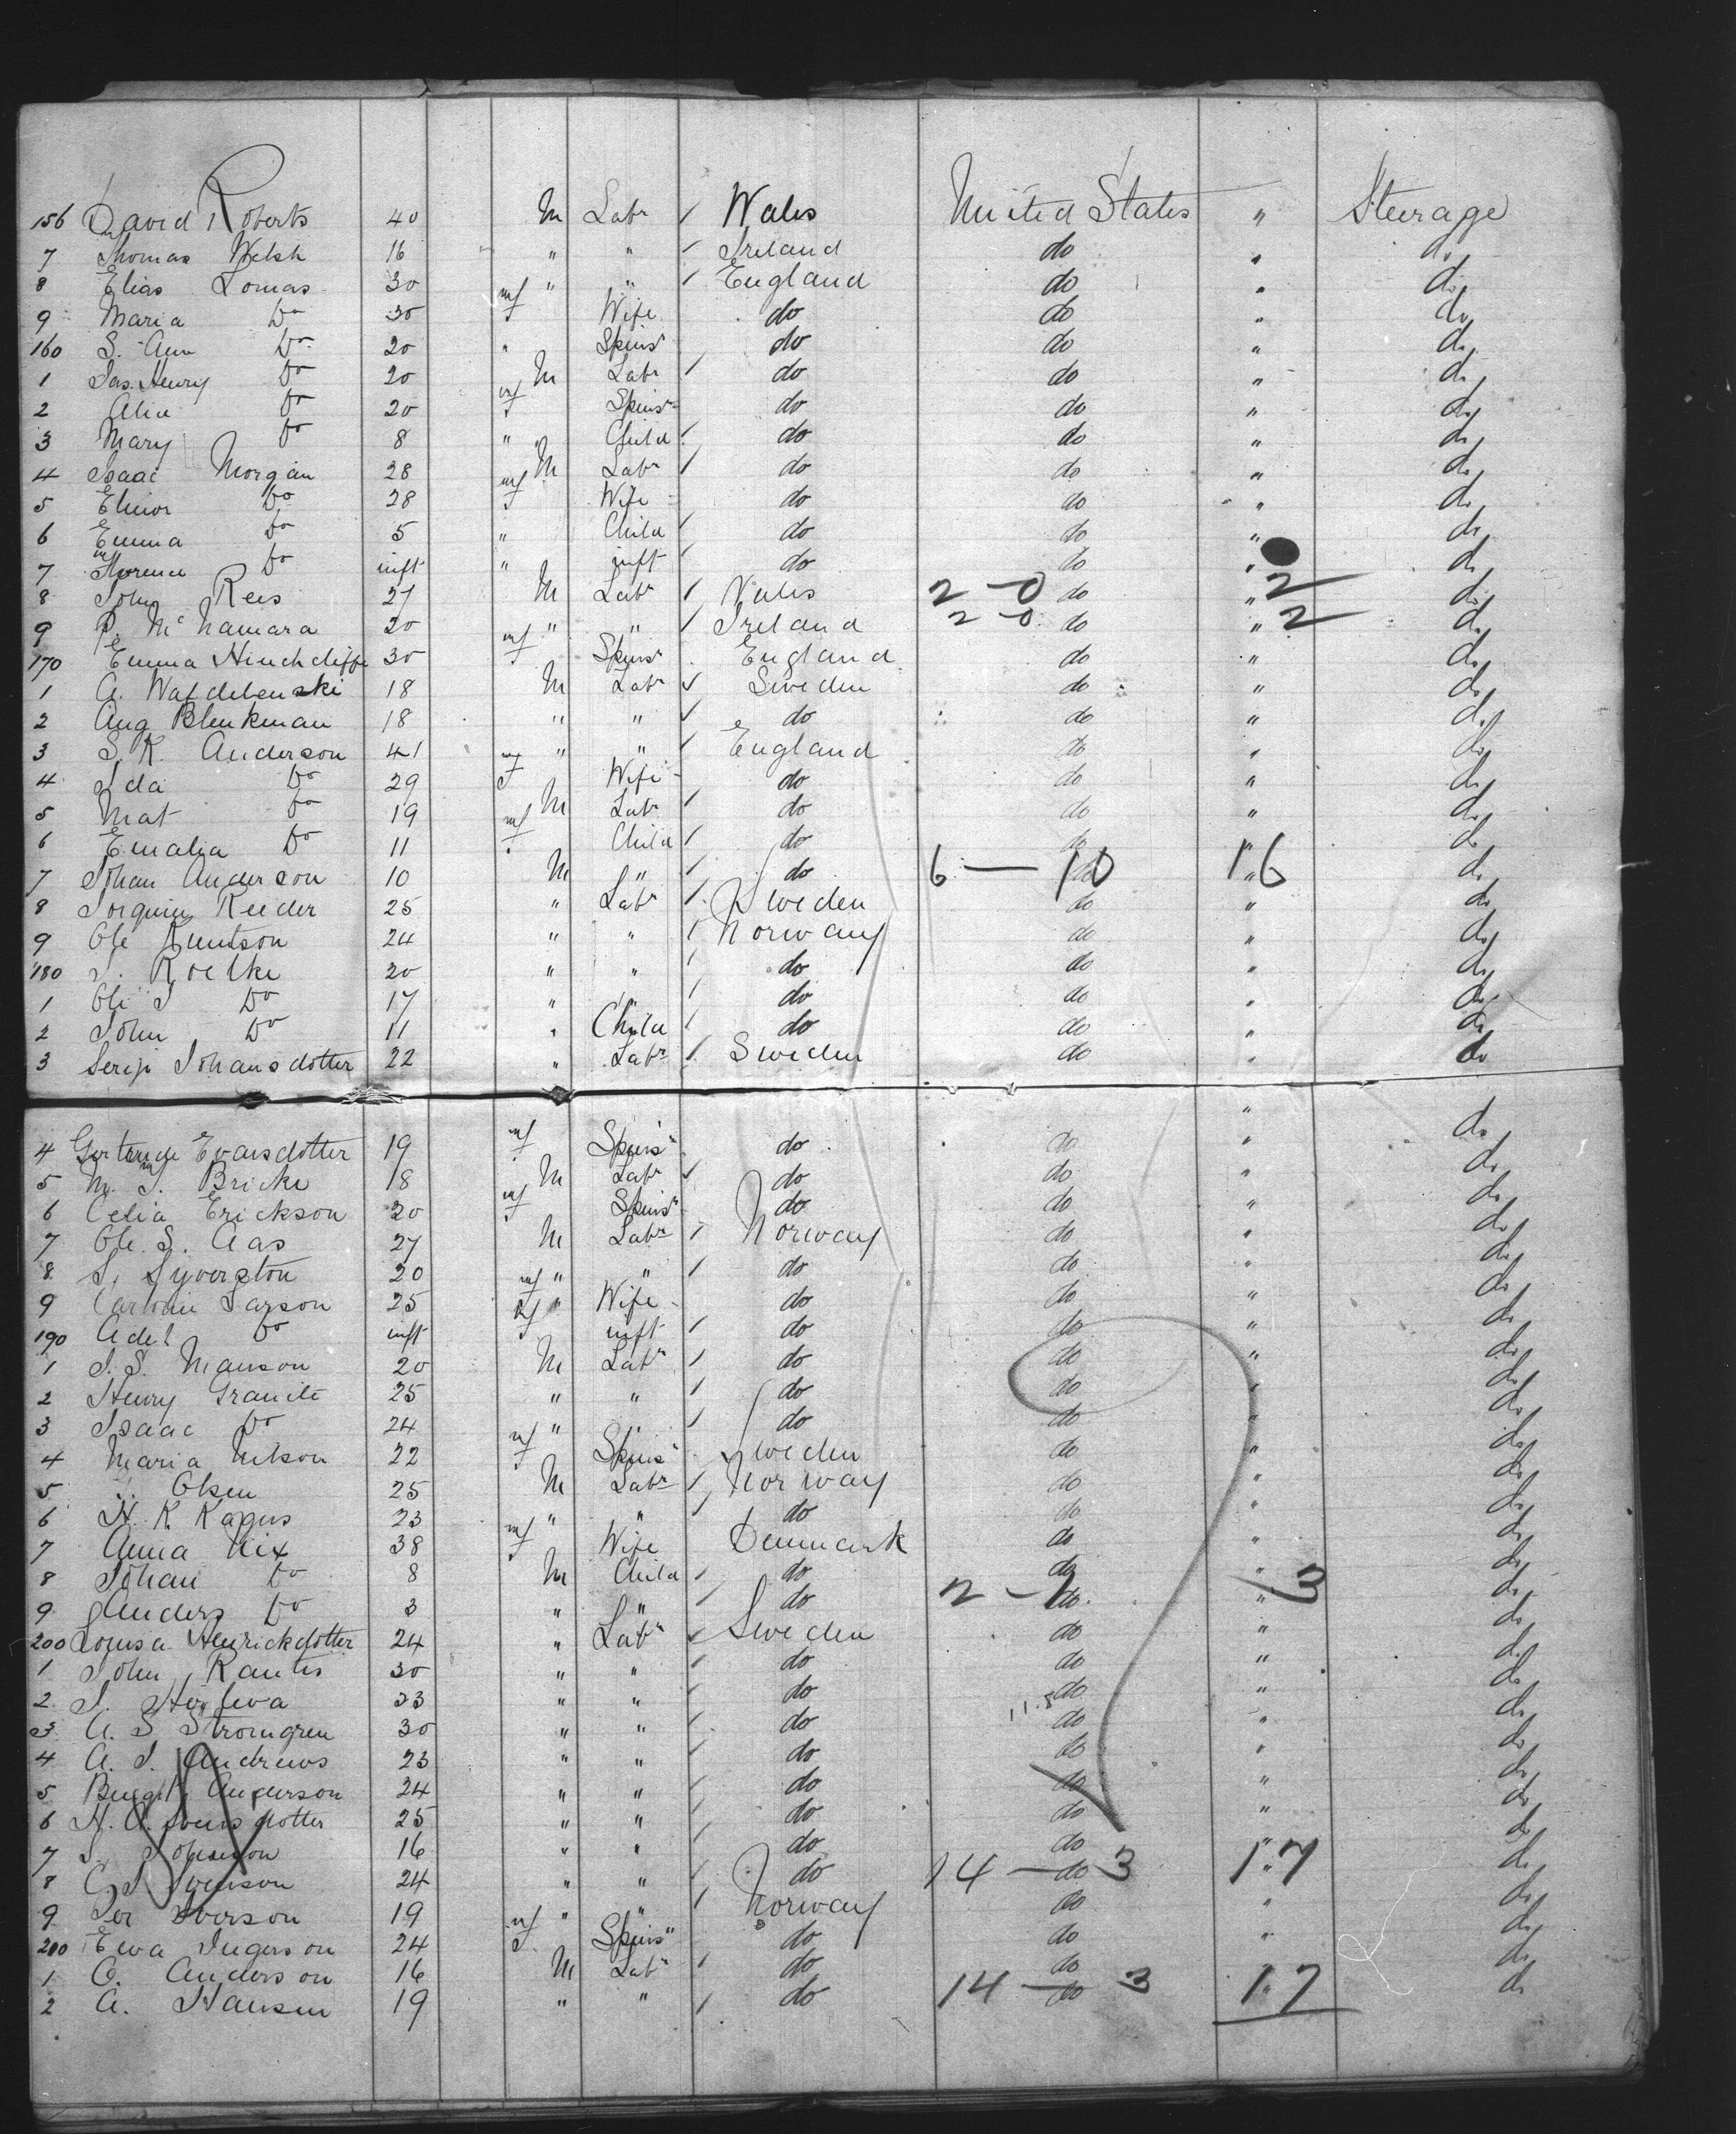 156 David Roberts 40 M Labr / Wales United States " Steerage
7 Thomas Welsh 16 " " / Ireland do " do
8 Elias Lomas 30 " " / England do " do
9 Maria Do 30 f Wife do do " do
160 S. Ann Do 20 " Spinsr do do " do
1 Jas. Henry Do 20 M Labr / do do " do
2 Alice Do 20 f Spinsr do do " do
3 Mary Do 8 " Child / do do " do
4 Isaac Morgan 28 M Labr / do do " do
5 Elinor Do 28 f Wife do do " do
6 Emma Do 5 " Child / do do " do
7 Florence Do inft " inft / do do " do
8 John Rees 27 M Labr / Wales 2 - 0 do " 2 do
9 P. McNamara 20 " " / Ireland 2 - 0 do " 2 do
170 Emma Hinchcliffe 30 f Spinsr England do " do
1 A. 18 M Labr / Sweden do " do
2 Aug Blenkman 18 " " / do do " do
3 S. K. Anderson 41 " " / England do " do
4 Ida Do 29 f Wife do do " do
5 Mat Do 19 M Labr / do do " do
6 Emalia Do 11 f Child / do do " do
7 Johan Anderson 10 M " / do 6 - 10 do " 16 do
8 Reeder 25 " Labr / Sweden do " do
9 Ole Knutson 24 " " / Norway do " do
180 Roelke 20 " " / do do " do
1 Ole J Do 17 " " / do do " do
2 John Do 11 " Child / do do " do
3 Johansdotter 22 " Labr / Sweden do " do
4 Evansdotter 19 f Spinsr do do " do
5 M. J. Bricke 18 M Labr / do do " do
6 Celia Erickson 20 f Spinsr do do " do
7 Ole. S. Aas 27 M Labr / Norway do " do
8 S. Syverston 20 " " / do do " do
9 Larson 25 f Wife do do " do
190 Adel Do inft inft / do do " do
1 J. S. Manson 20 M Labr / do do " do
2 Henry Granite 25 " " / do do " do
3 Isaac Do 24 " " / do do " do
4 Maria Nelson 22 f Spinsr Sweden do " do
5 Olsen 25 M Labr / Norway do " do
6 H. K. Kagus 23 " " / do do " do
7 Anna Nix 38 f Wife Denmark do " do
8 Johan Do 8 M Child / do do " do
9 Anders Do 3 " " / do 2 - 1 do " 3 do
200 Louisa Henrickdotter 24 " Labr / Sweden do " do
1 John Rantis 30 " " / do do " do
2 J. 23 " " / do do " do
3 A. S Stromgren 30 " " / do do " do
4 A. J. Andrews 23 " " / do do " do
5 Anderson 24 " " / do do " do
6 25 " " / do do " do
7 Johnson 16 " " / do do " do
8 C. J Svenson 24 " " / do 14 - do 3 17 do
9 Per Iverson 19 " " / Norway do " do
200 Ewa Ingerson 24 f Spinsr do do " do
1 O. Anderson 16 M Labr / do do " do
2 A. Hansen 19 " " / do 14 - do 3 17 do